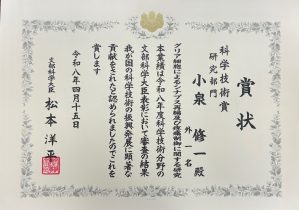 賞状
科学技術賞
研究部門
小泉 修一 殿
外一名
グリア細胞によるシナプス再編及び疼痛制御に関する研究
本業績は令和八年度科学技術分野の
文部科学大臣表彰において審査の結果
我が国の科学技術の振興発展に顕著な
貢献をされたと認められましたのでこれを
賞します
令和八年四月十五日
文部科学大臣 松本 洋平